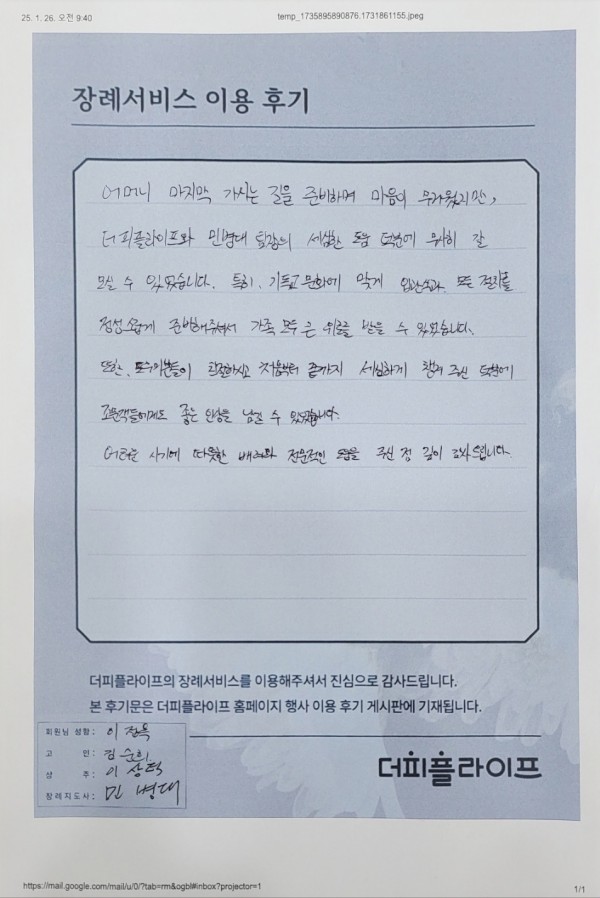 25. 1. 26. 오전 9:40
temp_1735895890876.1731861155.jpeg
장례서비스 이용 후기
어머니 마지막 가시는 길을 준비하며 마음이 무거웠지만,
더피플라이프와 민병대 팀장님의 세심한 도움 덕분에 무사히 잘
모실 수 있었습니다. 특히, 기독교 문화에 맞게 입관식과 모든 절차를
정성스럽게 준비해주셔서 가족 모두 큰 위로를 받을 수 있었습니다.
또한, 도우미분들이 친절하시고 처음부터 끝까지 세심하게 챙겨 주신 덕분에
조문객들에게도 좋은 인상을 남길 수 있었습니다.
어려운 시기에 따뜻한 배려와 전문적인 도움을 주신 점 깊이 감사드립니다.
더피플라이프의 장례서비스를 이용해주셔서 진심으로 감사드립니다.
본 후기문은 더피플라이프 홈페이지 행사 이용 후기 게시판에 기재됩니다.
회원님 성함 : 이
고 인 : 김순희
상 주 : 이상택
장례지도사 : 민병대
더피플라이프
https://mail.google.com/mail/u/0/?tab=rm&ogbl#inbox?projector=1
1/1